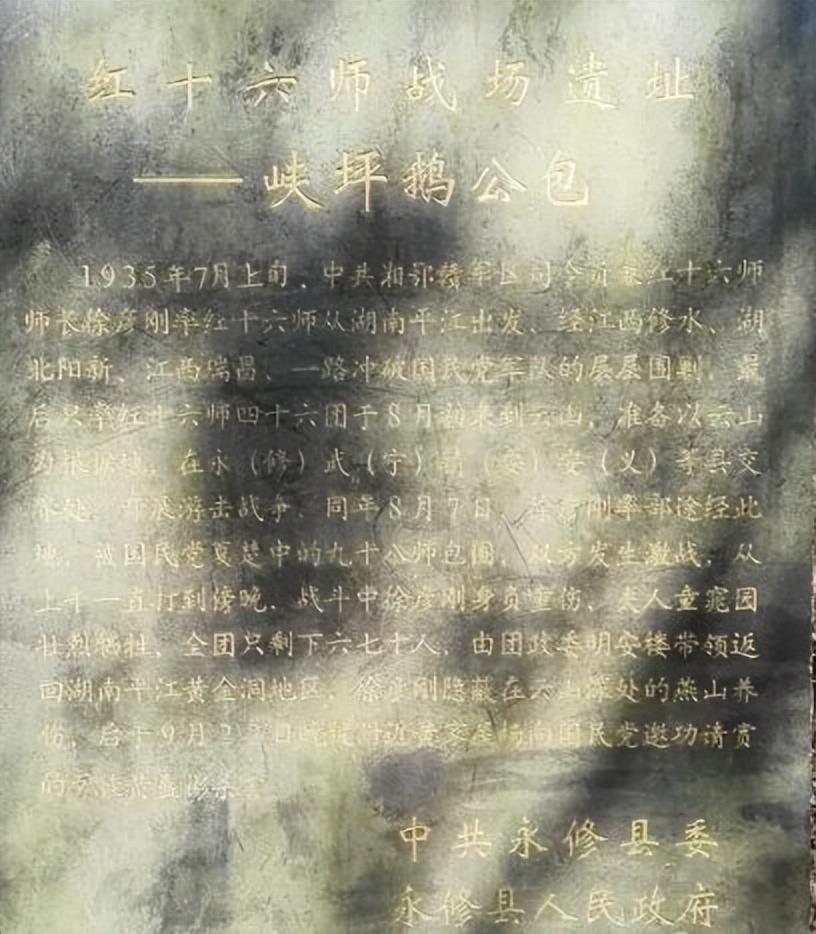 红十六师战场遗址
——峡坪鹅公包
1935年7月上旬，中共湘鄂赣军区司令员兼红十六师
师长徐彦刚率红十六师从湖南平江出发，经江西修水、湖
北阳新、江西瑞昌，一路冲破国民党军队的层层围剿，最
后只率红十六师四十六团于8月初来到云山，准备以云山
为根据地，在永（修）武（宁）靖（安）安（义）等县交
界处，开展游击战争。同年8月7日，徐彦刚率部途经此
地，被国民党夏楚中的九十八师包围，双方发生激战，从
上午一直打到傍晚，战斗中徐彦刚身负重伤，夫人童霓园
壮烈牺牲，全团只剩下六七十人，由团政委明安楼带领返
回湖南平江黄金洞地区，徐彦刚隐蔽在云山深处的燕山养
伤，后于9月2 日 附近 向国民党邀功请赏
的 杀
中共永修县委
永修县人民政府